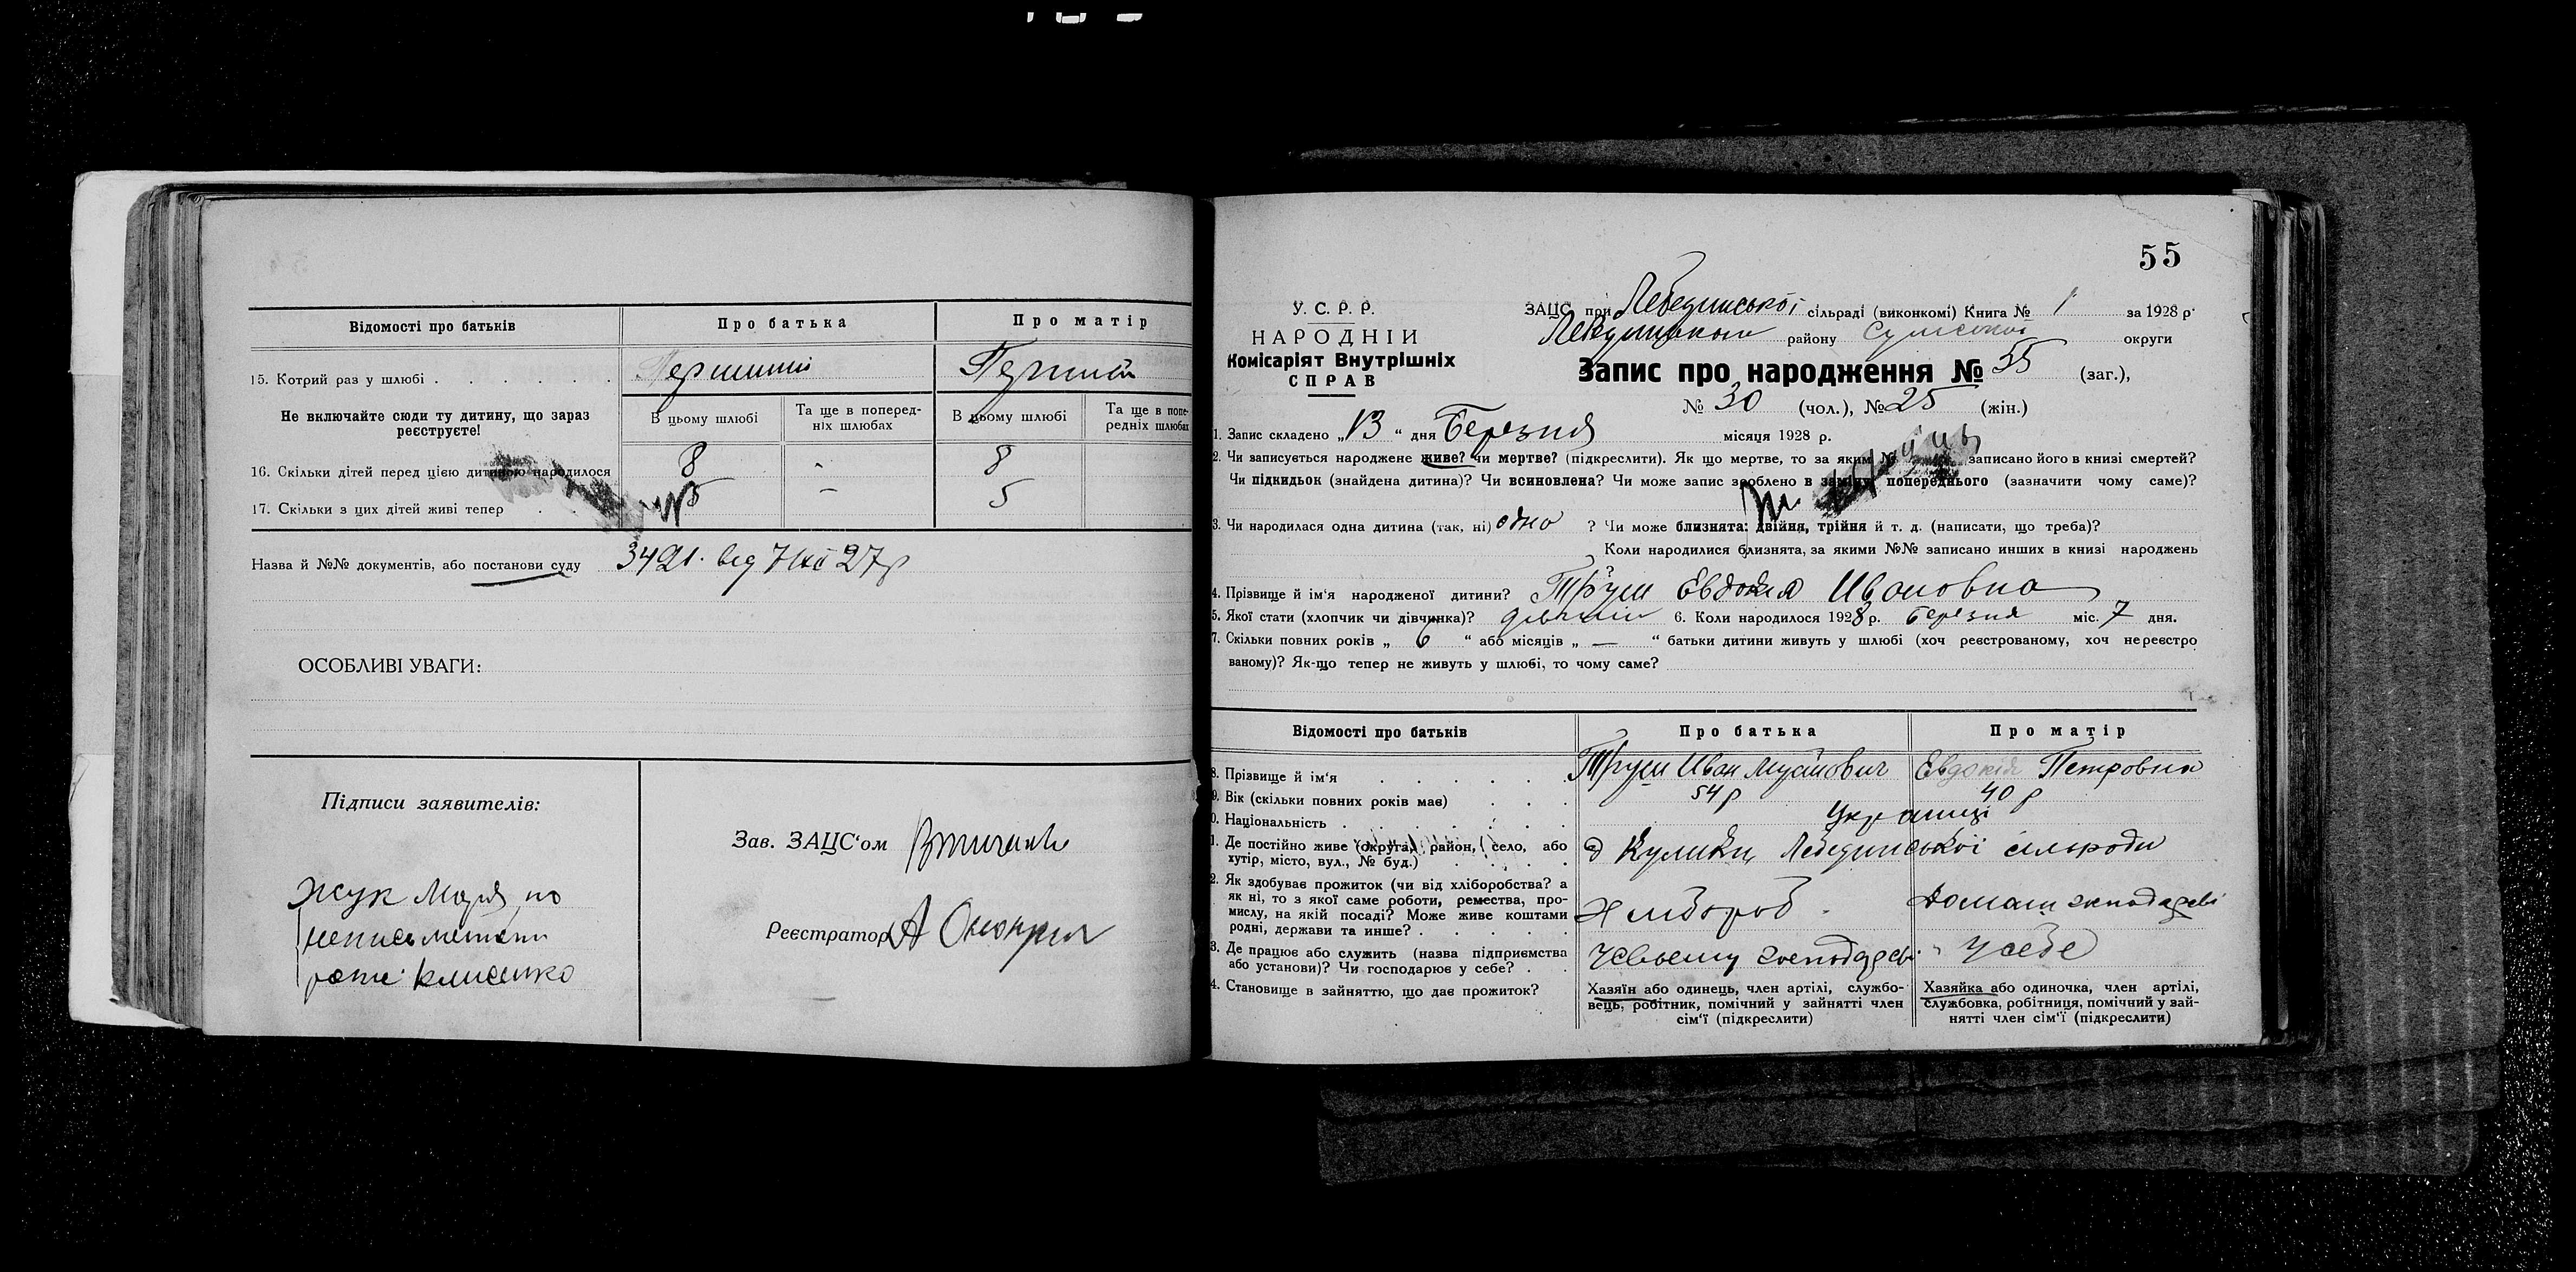 Відомості про батьків
Про батька
Про матір
15. Котрий раз у шлюбі
Перший
Перший
Не включайте сюди ту дитину, що зараз реєструєте!
В цьому шлюбі
Та ще в поперед-
ніх шлюбах
В цьому шлюбі
Та ще в попе-
редніх шлюбах
16. Скільки дітей перед цією дитиною народилося
8
-
8
17. Скільки з цих дітей живі тепер
5
-
5
Назва й №№ документів, або постанови суду 3421 від 7/XII 27р
ОСОБЛИВІ УВАГИ:
Підписи заявителів:
Жук Мария, но
неписьменн
Клисенко
Зав. ЗАЦС‘ом
Реєстратор А
55
У. С. Р. Р.
НАРОДНІЙ
Комісаріят Внутрішніх
СПРАВ
ЗАЦС при Лебединської сільраді (виконкомі) Книга № 1 за 1928 р.
Лебединського району Сумської округи
Запис про народження № 55 (заг.),
№ 30 (чол.), № 25 (жін.)
1. Запис складено „13“ дня Березня місяця 1928 р.
2. Чи записується народжене живе? чи мертве? (підкреслити). Як що мертве, то за яким № записано його в книзі смертей?
Чи підкидьок (знайдена дитина)? Чи всиновлена? Чи може запис зроблено в заміну попереднього (зазначити чому саме)?
3. Чи народилася одна дитина (так, ні) одна ? Чи може близнята: двійня, трійня й т. д. (написати, що треба)?
Коли народилися близнята, за якими №№ записано инших в книзі народжень
?
4. Прізвище й ім‘я народженої дитини? Труш Евдокия Ивановна
5. Якої стати (хлопчик чи дівчинка)? 6. Коли народилося 1928 р. березня міс. 7 дня.
7. Скільки повних років „ 6 “ або місяців „ — “ батьки дитини живуть у шлюбі (хоч реєстрованому, хоч нереєстро
ваному)? Як-що тепер не живуть у шлюбі, то чому саме?
Відомості про батьків
Про батька
Про матір
8. Прізвище й ім‘я
Труш Иван Мусійович
Евдокія Петровна
9. Вік (скільки повних років має)
54 р
40 р
0. Національність
Українці
1. Де постійно живе (округа, район, село, або
хутір, місто, вул., № буд.)
Кулики Лебединської сільради
2. Як здобуває прожиток (чи від хліборобства? а
як ні, то з якої саме роботи, ремества, про-
мислу, на якій посаді? Може живе коштами
родні, держави та инше?
Хлібороб
Домаш господарсві
3. Де працює або служить (назва підприємства
або установи)? Чи господарює у себе?
У своєму господарсві
У себе
4. Становище в зайняттю, що дає прожиток?
Хазяїн або одинець, член артілі, службо-
вець, робітник, помічний у зайнятті член
сім‘ї (підкреслити)
Хазяйка або одиночка, член артілі,
службовка, робітниця, помічний у зай-
нятті член сім‘ї (підкреслити)